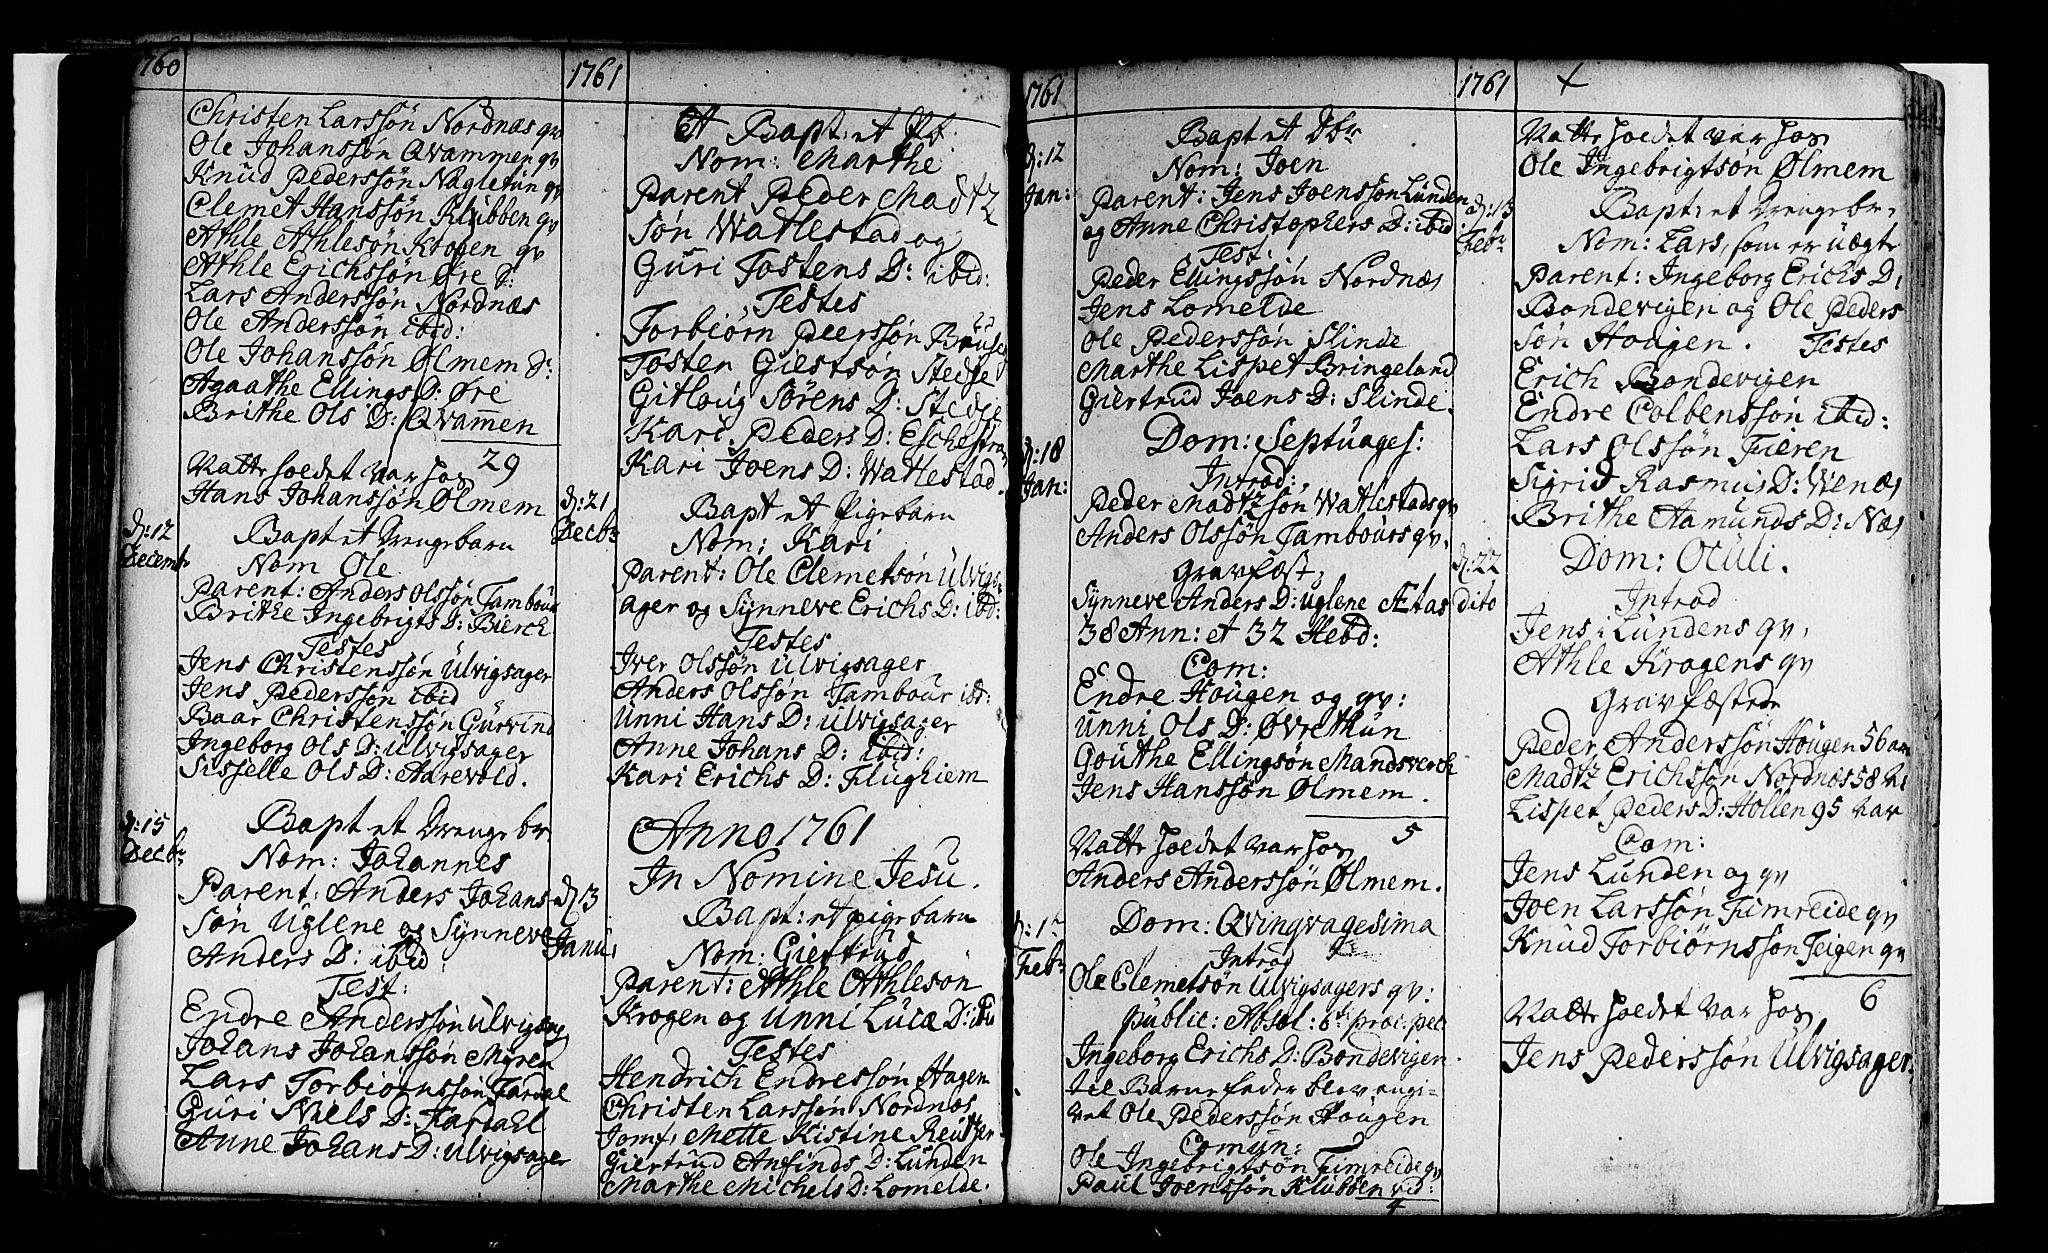 1760
Christen Larssøn Nordnæs qv
Ole Johanssøn Qvammen qv
Knud Pederssøn Nagletun qv
Clemet Hanssøn Klubben qv
Athle Athlesøn Krogen qv
Athle Erichssøn Øre
Lars Anderssøn Nordnæs
Ole Anderssøn ibid:
Ole Johanssøn Ølmem
Agaathe Ellings D: Øre
Brithe Ols D: Qvam̅en
29
Natteholdet var hos
Hans Johanssøn Ølmem
d: 12
Decemb
Bapt et Drengebarn
Nom Ole
Parent: Anders Olssøn Tambour
Brithe Ingebrigts D: Bierch
Testes
Jens Christenssøn Ulvigsager
Jens Pederssøn ibid
Baar Christenssøn Gurvind
Ingeborg Ols D: Ulvigsager
Sisselle Ols D: Aarevold.
d: 15
Decbr
Bapt et Drengebr
Nom: Johannes
Parent: Anders Johans-
søn Uglene og Synneve
Anders D: ibid
Test:
Endre Anderssøn Ulvigsag
Johans Johanssøn Myren
Lars Torbiørnssøn Fardal
Guri Niels D: Fardahl
Anne Johans D: Ulvigsager
1761
Et Bapt: et
Nom: Marthe
Parent Peder Madtz
søn Watlestad og
Guri Tostens D: ibid:
Testes
Torbiørn Peerssøn
Tosten Giestsøn Stedje
Gitloug Sørens D: Stedje
Kari Peders D: Eschestrand
Kari Joens D: Watlestad.
d: 21
Decbr
Bapt et Pigebarn
Nom: Kari
Parent: Ole Clemetsøn Ulvigs
ager og Synneve Erichs D: ibd:
Testes
Iver Olssøn Ulvigsager
Anders Olssøn Tambour ib:
Unni Hans D: Ulvigsager
Anne Johans D: ibid:
Kari Erichs D: Flughiem
Anno 1761
In Nomine Jesu.
d 3
Janu:
Bapt: et pigebarn
Nom: Giertrud
Parent: Athle Athleson
Krogen og Unni Luca D: ibid
Testes
Hendrich Endressøn Hagen
Christen Larssøn Nordnæs
Jomf: Mette Kistine Reutzer
Giertrud Anfinds D: Lunden
Marthe Michels D: Lomelde.
1761
d: 12
Jan:
Bapt et Dbr
Nom: Joen
Parent: Jens Joenssøn Lunden
og Anne Christophers D: ibid
Test:
Peder Ellingssøn Nordnæs
Jens Lomelde
Ole Pederssøn Slinde
Marthe Lispet Bringeland
Giertrud Joens D: Slinde.
d: 18
Jan:
Dom: Septuages:
Introd:
Peder Madtzsøn Watlestads qv
Anders Olssøn Tambours qv.
Gravfæst:
Synneve Anders D: Uglene Ætas
38 Ann: et 32 Hebd:
Com:
Endre Hougen og qv:
Unni Ols D: Øvrethun
Gouthe Ellingsøn Mandsverch
Jens Hanssøn Ølmem.
5
Natteholdet var hos
Anders Anderssøn Ølmem.
d: 1
Febr
Dom: Qvinqvagesima
Introd
Ole Clemetsøn Ulvigsagers qv:
Public: Absol: 6ti præc: pec
Ingeborg Erichs D: Bondevigen.
til Barnefader blev angi-
vet Ole Pederssøn Hougen
Comun:
Ole Ingebrigtsøn Fimreide qv
Paul Joenssøn Klubben vid:
4
1761
Natteholdet var hos
Ole Ingebrigtson Ølmem
d: 13
Febr
Bapt: et Drengebr:
Nom: Lars, som er uægte
Parent: Ingeborg Erichs D:
Bondevigen og Ole Peders
søn Hougen. Testes
Erich Bondevigen
Endre Colbenssøn ibid:
Lars Olssøn Fieren
Sigrid Rasmus D: Wenæs
Brithe Aamunds D: Næs
d: 22
dito
Dom: Oculi.
Introd
Jens i Lundens qv.
Athle Krogens qv
Gravfæstede
Peder Anderssøn Hougen 56 aar
Madtz Erichssøn Nordnæs 58
Lispet Peders D: Hollen 95 var
Com:
Jens Lunden og qv
Joen Larssøn Fimreide qv
Knud Torbiørnssøn Teigen qv
6
Natteholdet var hos
Jens Pederssøn Ulvigsager.